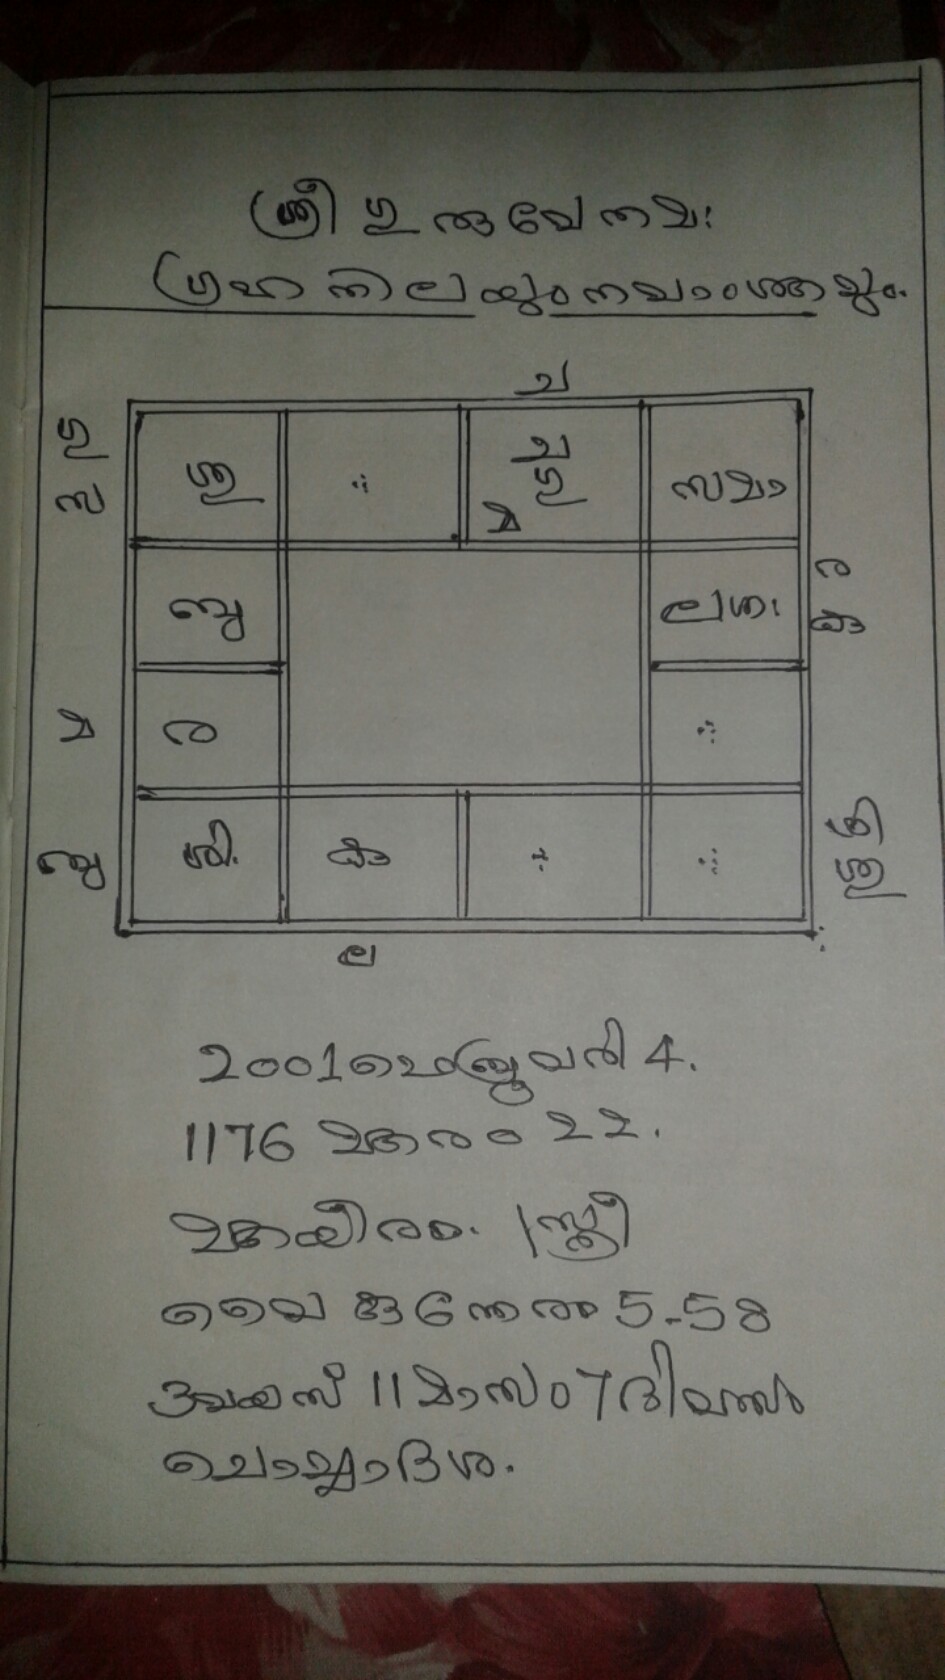 ശ്രീ ഗുരുവേ നമ:
ഗ്രഹനിലയും നവാംശകവും.
ച
ഗു
ശു
∴
മ
സമാ
ബു
ലശ:
ര
കു
മ
ര
∴
ബു
ശി.
കു
∴
∴
ല
2001 ഫെബ്രുവരി 4.
1176 മകരം 22.
മകയീരം. സ്ത്രീ
വൈകുന്നേരം 5-58
3 വയസ് 11 മാസം 7 ദിവസം
ചൊവ്വാദശ.